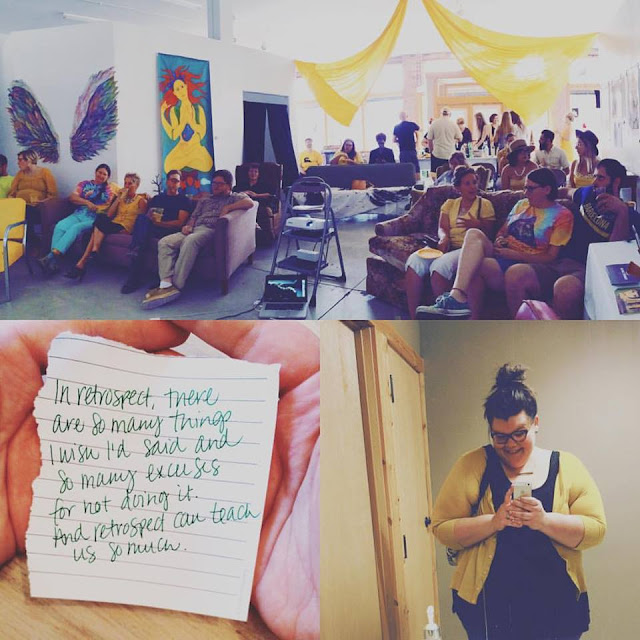 In retrospect, there
are so many things
I wish I'd said and
so many excuses
for not doing it.
And retrospect can teach
us so much.